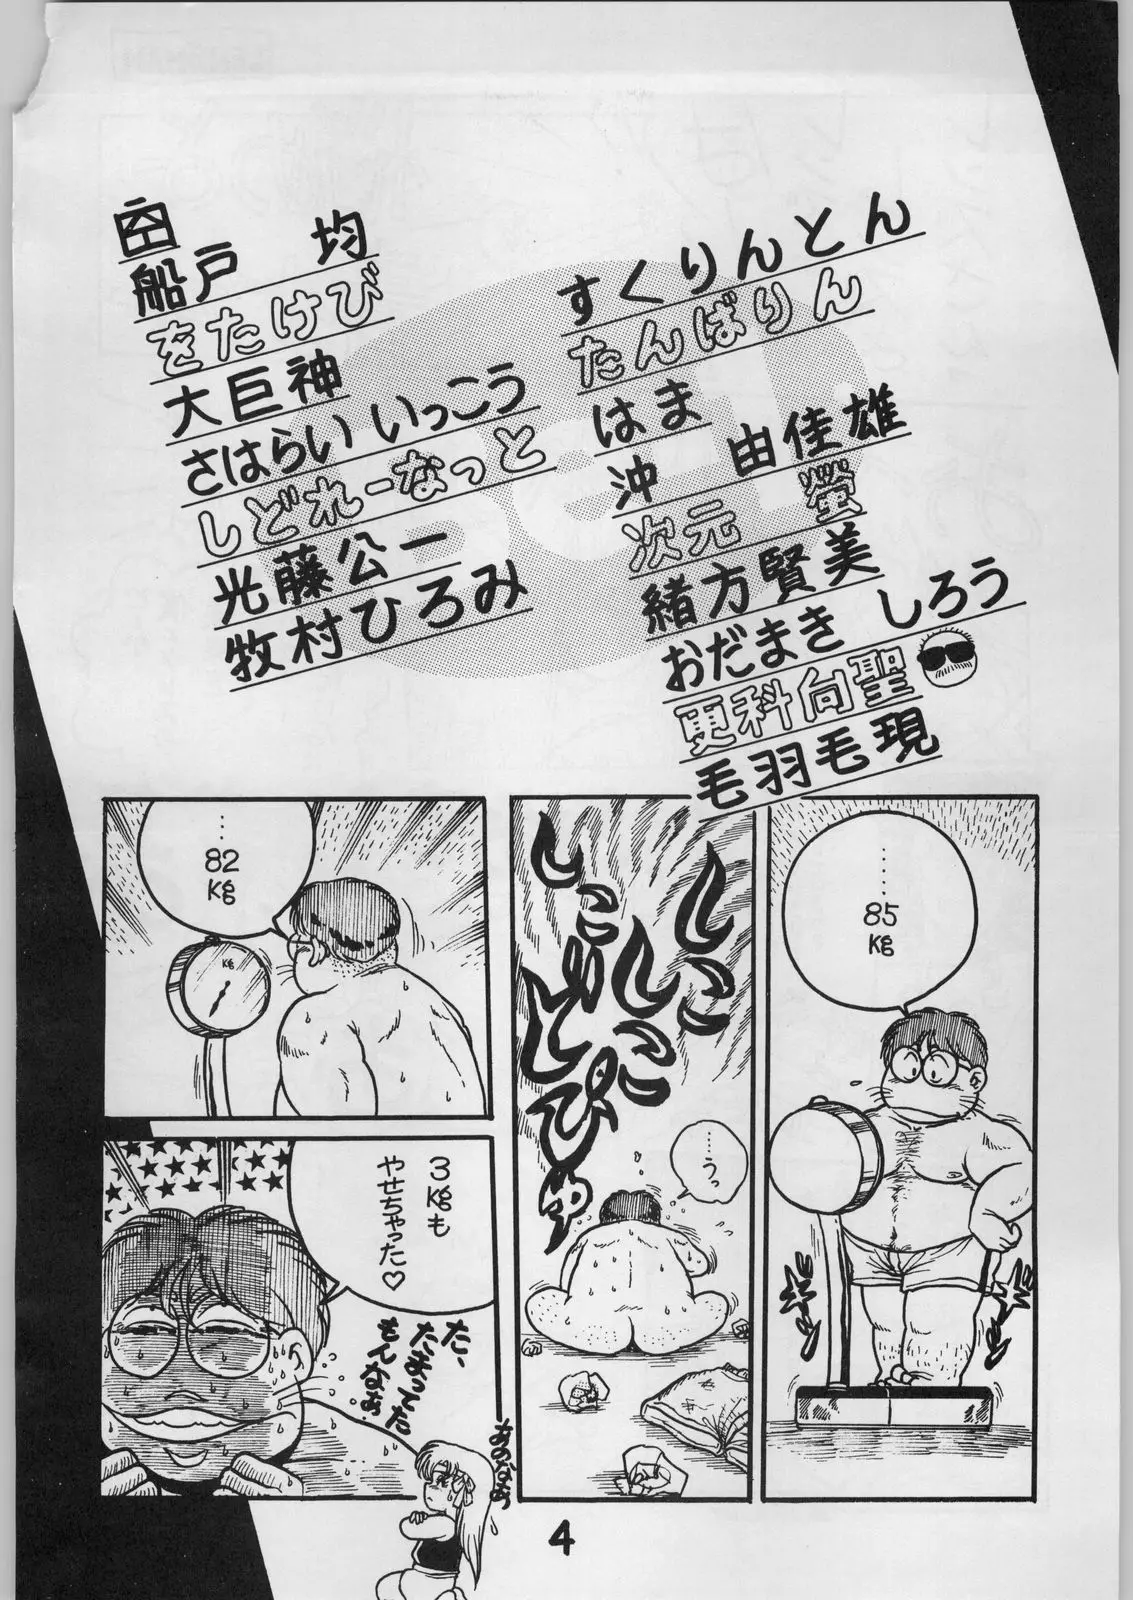 船戸　均
をたけび
大巨神
さはらい いっこう
しどれーなっと
光藤公一
牧村ひろみ
すくりんとん
たんばりん
はま
沖　由佳雄
次元　螢
緒方賢美
おだまき しろう
更科向聖
毛羽毛現
……
85
kg
しこ
しこ
しこ
しこ
どぴゅ
…うっ
……
82
kg
kg
3kgも
やせちゃった♡
た、
たまってた
もんなぁ。
あのなあっ
4